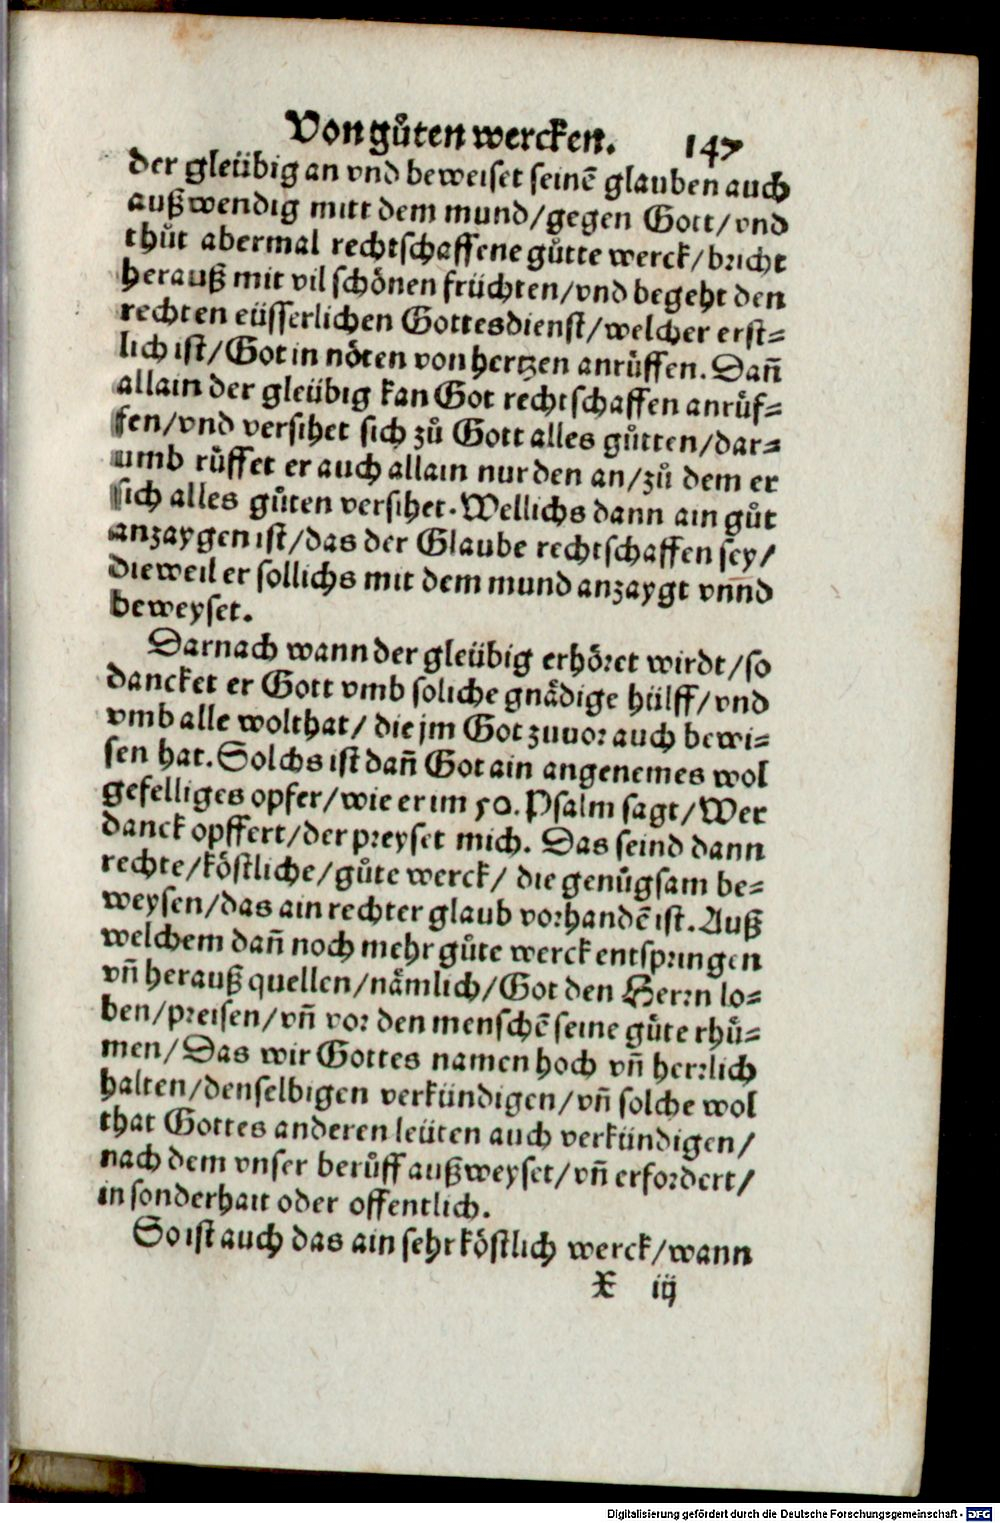 Von gůten wercken. 147
der gleübig an vnd beweiset seinē glauben auch
außwendig mitt dem mund/gegen Gott/vnd
thůt abermal rechtschaffene gůtte werck/bricht
herauß mit vil schönen früchten/vnd begeht den
rechten eüsserlichen Gottesdienst/welcher erst⸗
lich ist/Got in nöten von hertzen anrůffen. Dañ
allain der gleübig kan Got rechtschaffen anrůf⸗
fen/vnd versihet sich zů Gott alles gůtten/dar⸗
umb růffet er auch allain nur den an/zů dem er
sich alles gůten versihet. Wellichs dann ain gůt
anzaygen ist/das der Glaube rechtschaffen sey/
dieweil er sollichs mit dem mund anzaygt vnnd
beweyset.
Darnach wann der gleübig erhöret wirdt/so
dancket er Gott vmb soliche gnådige hülff/vnd
vmb alle wolthat/ die jm Got zuuor auch bewi⸗
sen hat. Solchs ist dañ Got ain angenemes wol
gefelliges opfer/wie er im 50. Psalm sagt/Wer
danck opffert/der preyset mich. Das seind dann
rechte/köstliche/gůte werck/ die genůgsam be⸗
weysen/das ain rechter glaub vorhandē ist. Auß
welchem dañ noch mehr gůte werck entspringen
vñ herauß quellen/nåmlich/Got den Herrn lo⸗
ben/preisen/vñ vor den menschē seine gůte rhů⸗
men/ Das wir Gottes namen hoch vñ herrlich
halten/denselbigen verkündigen/vñ solche wol
that Gottes anderen leüten auch verkündigen/
nach dem vnser berůff außweyset/vñ erfordert/
in sonderhait oder offentlich.
So ist auch das ain sehr köstlich werck/wann
X iij
Digitalisierung gefördert durch die Deutsche Forschungsgemeinschaft - DFG